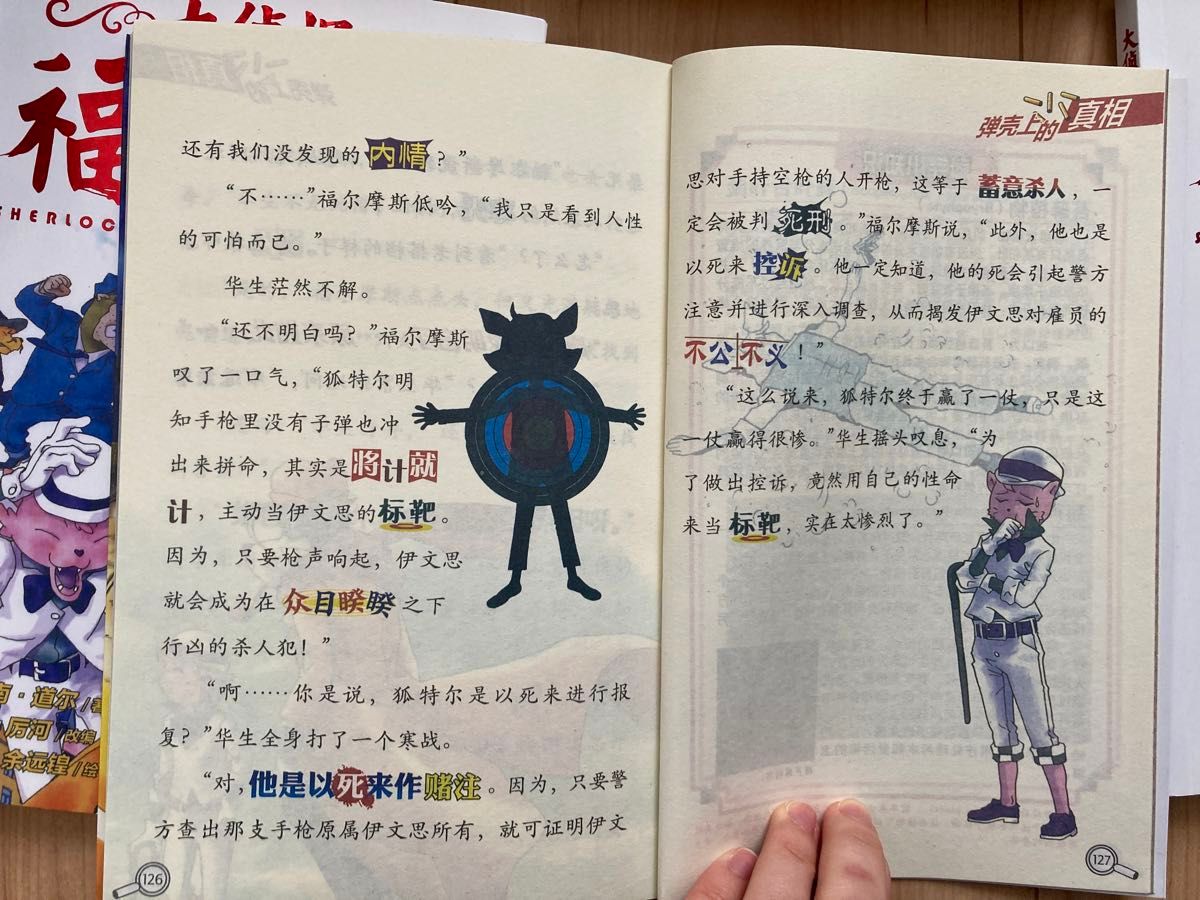 大侦探
福
SHERLOC
南·道尔/著
厉河/改编
余远锽/绘
还有我们没发现的内情？”
“不……”福尔摩斯低吟，“我只是看到人性
的可怕而已。”
华生茫然不解。
“还不明白吗？”福尔摩斯
叹了一口气，“狐特尔明
知手枪里没有子弹也冲
出来拼命，其实是将计就
计，主动当伊文思的标靶。
因为，只要枪声响起，伊文思
就会成为在众目睽睽之下
行凶的杀人犯！”
“啊……你是说，狐特尔是以死来进行报
复？”华生全身打了一个寒战。
“对，他是以死来作赌注。因为，只要警
方查出那支手枪原属伊文思所有，就可证明伊文
126
弹壳上的真相
思对手持空枪的人开枪，这等于蓄意杀人，一
定会被判死刑。”福尔摩斯说，“此外，他也是
以死来控诉。他一定知道，他的死会引起警方
注意并进行深入调查，从而揭发伊文思对雇员的
不公不义！”
“这么说来，狐特尔终于赢了一仗，只是这
一仗赢得很惨。”华生摇头叹息，“为
了做出控诉，竟然用自己的性命
来当标靶，实在太惨烈了。”
127
大侦